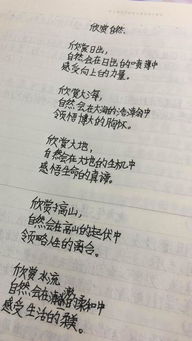 欣赏自然
欣赏日出,
自然会在日出的喷薄中
感受向上的力量。
欣赏大海,
自然会在大海的浩瀚中
领悟博大的胸怀。
欣赏大地,
自然会在大地的生机中
感悟生命的真谛。
欣赏高山,
自然会在高山的起伏中
领略人生的离合。
欣赏水流
自然会在潺潺的柔和中
感受生活的美。